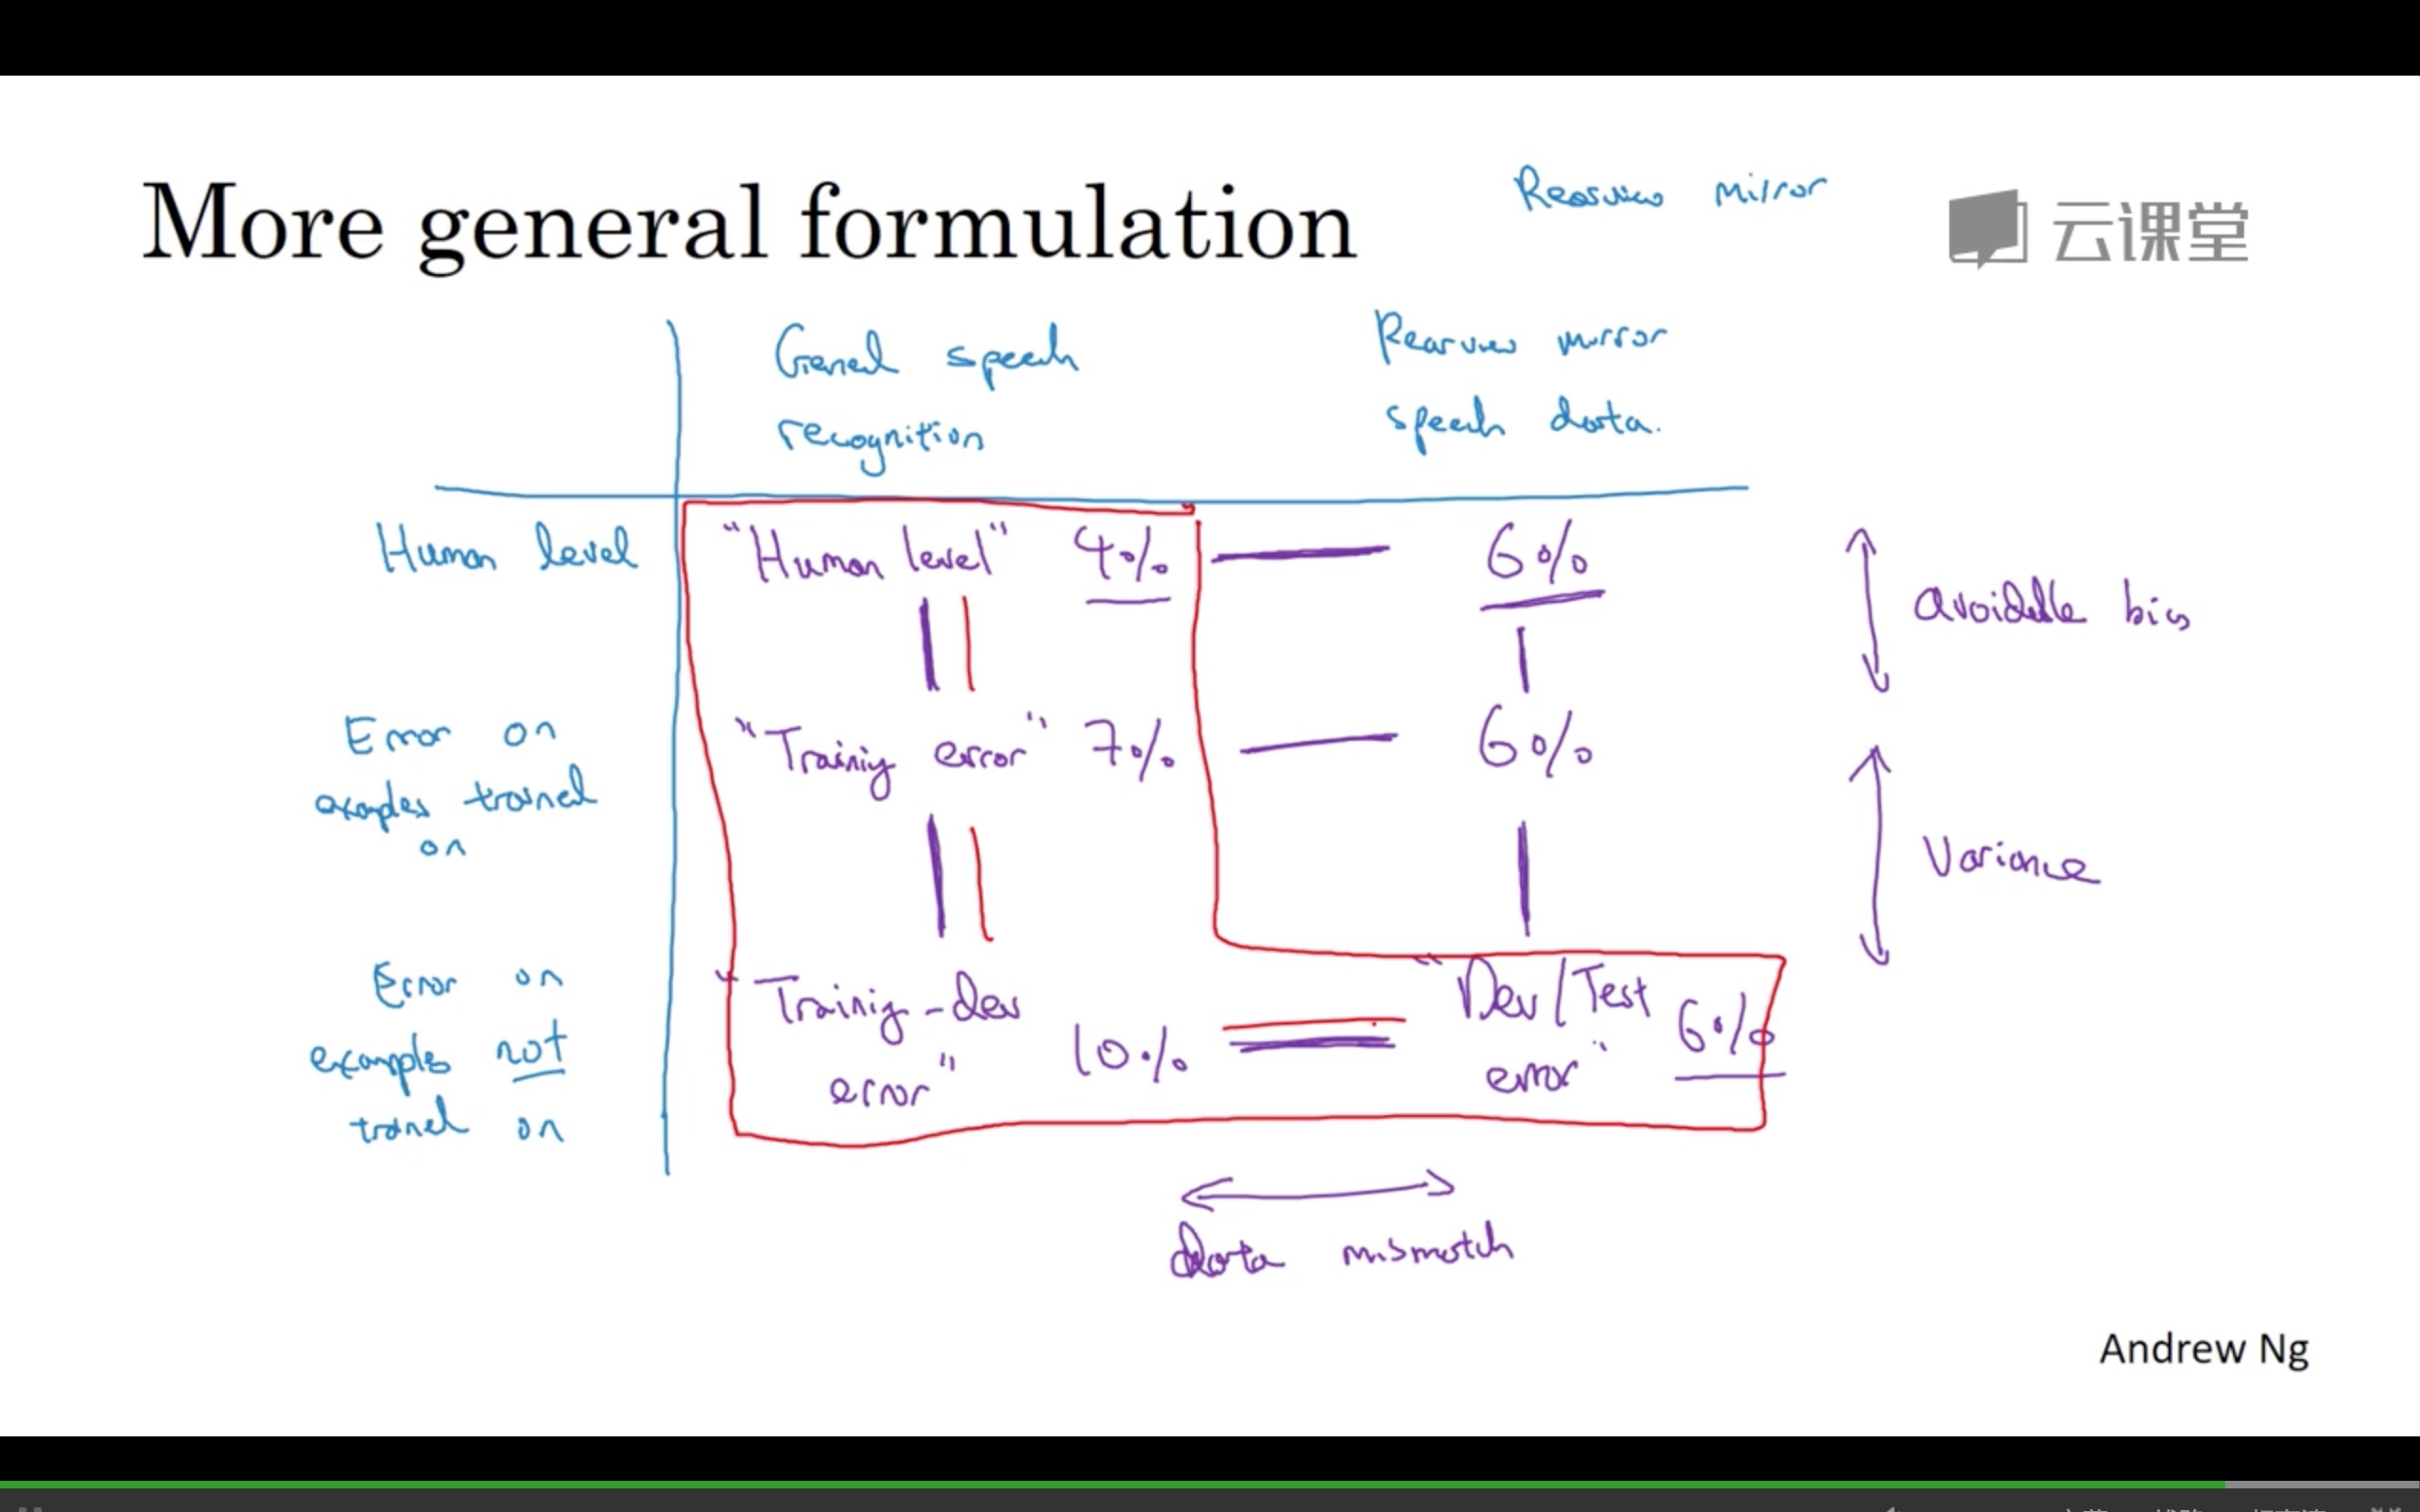 More general formulation
Rearview mirror
云课堂
General speech
recognition
Rearview mirror
speech data.
Human level
"Human level" 4%
6%
avoidable bias
Error on
examples trained
on
"Training error" 7%
6%
Variance
Error on
examples not
trained on
"Training-dev
error"
10%
"Dev/Test
error"
6%
data mismatch
Andrew Ng